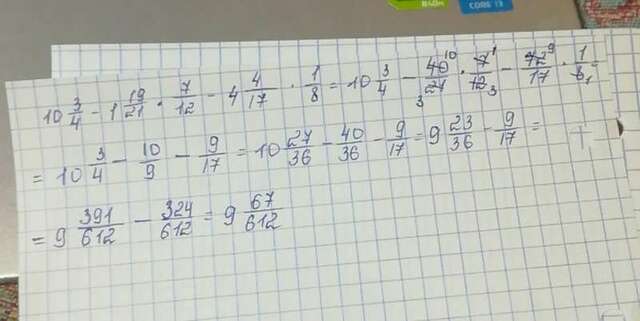 840M
CORE i3
10 3/4 - 1 19/21 · 7/12 - 4 4/17 · 1/8 = 10 3/4 - 40 10/21 3 · 7 1/12 3 - 72 9/17 · 1/8 1 =
= 10 3/4 - 10/9 - 9/17 = 10 27/36 - 40/36 - 9/17 = 9 23/36 - 9/17 =
= 9 391/612 - 324/612 = 9 67/612